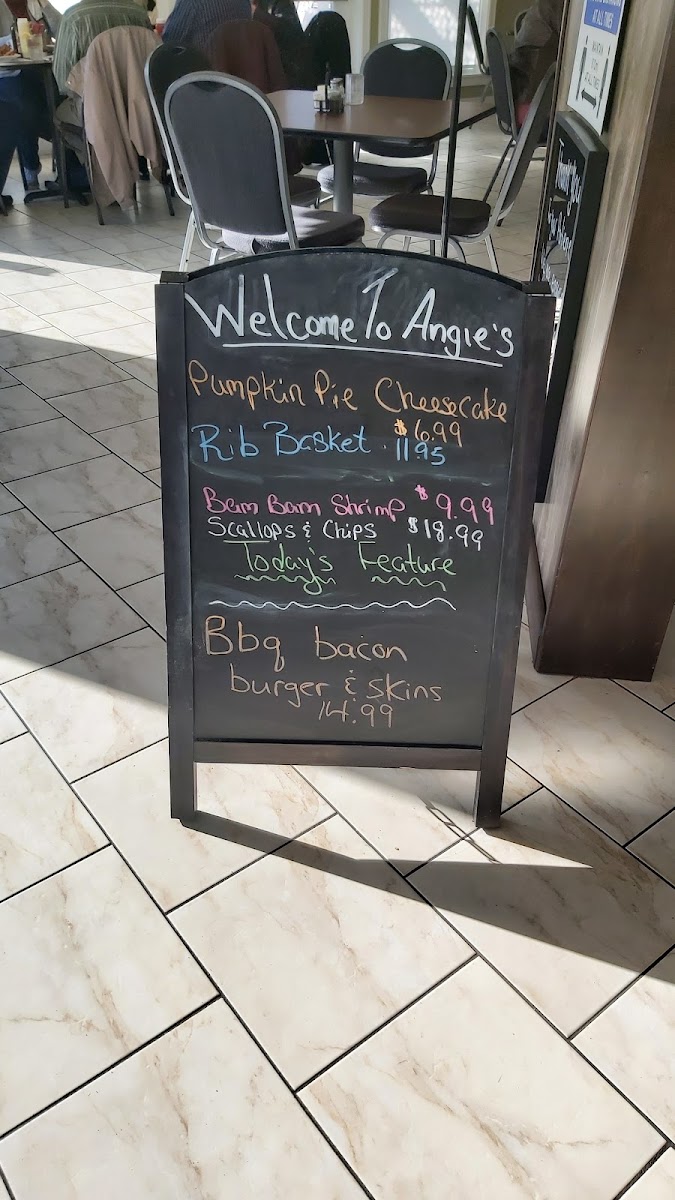 AT ALL TIMES
Welcome To Angie's
Pumpkin Pie Cheesecake
$6.99
Rib Basket 11.95
Bam Bam Shrimp $9.99
Scallops & Chips $18.99
Today's Feature
Bbq bacon
burger & skins
14.99
Thank you